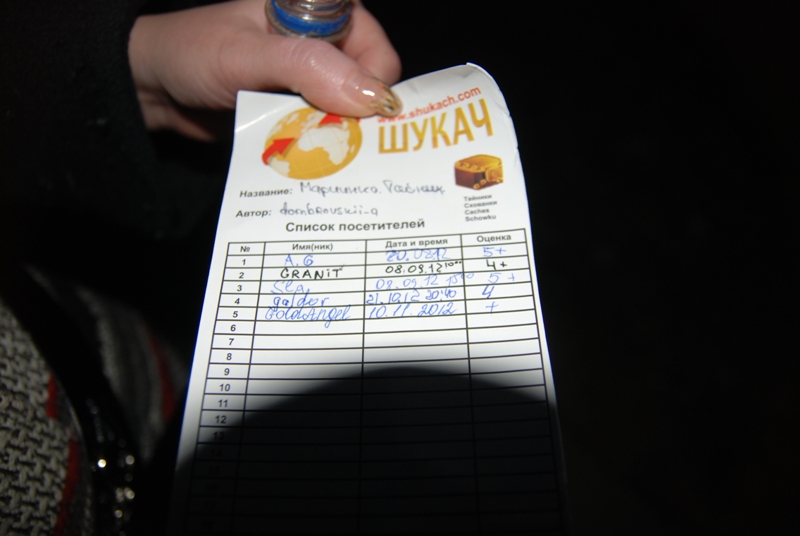 www.shukach.com
ШУКАЧ
Тайники
Схованки
Caches
Schowku
Название:
Автор: dombrovskii-a
Список посетителей
№ Имя(ник) Дата и время Оценка
1 A.G 5+
2 GRANiT 08.09.12 4+
3 08.09.12 5+
4 galdor 21.10.12 20:40 4
5 GoldAngel 10.11.2012 +
6
7
8
9
10
11
12
13